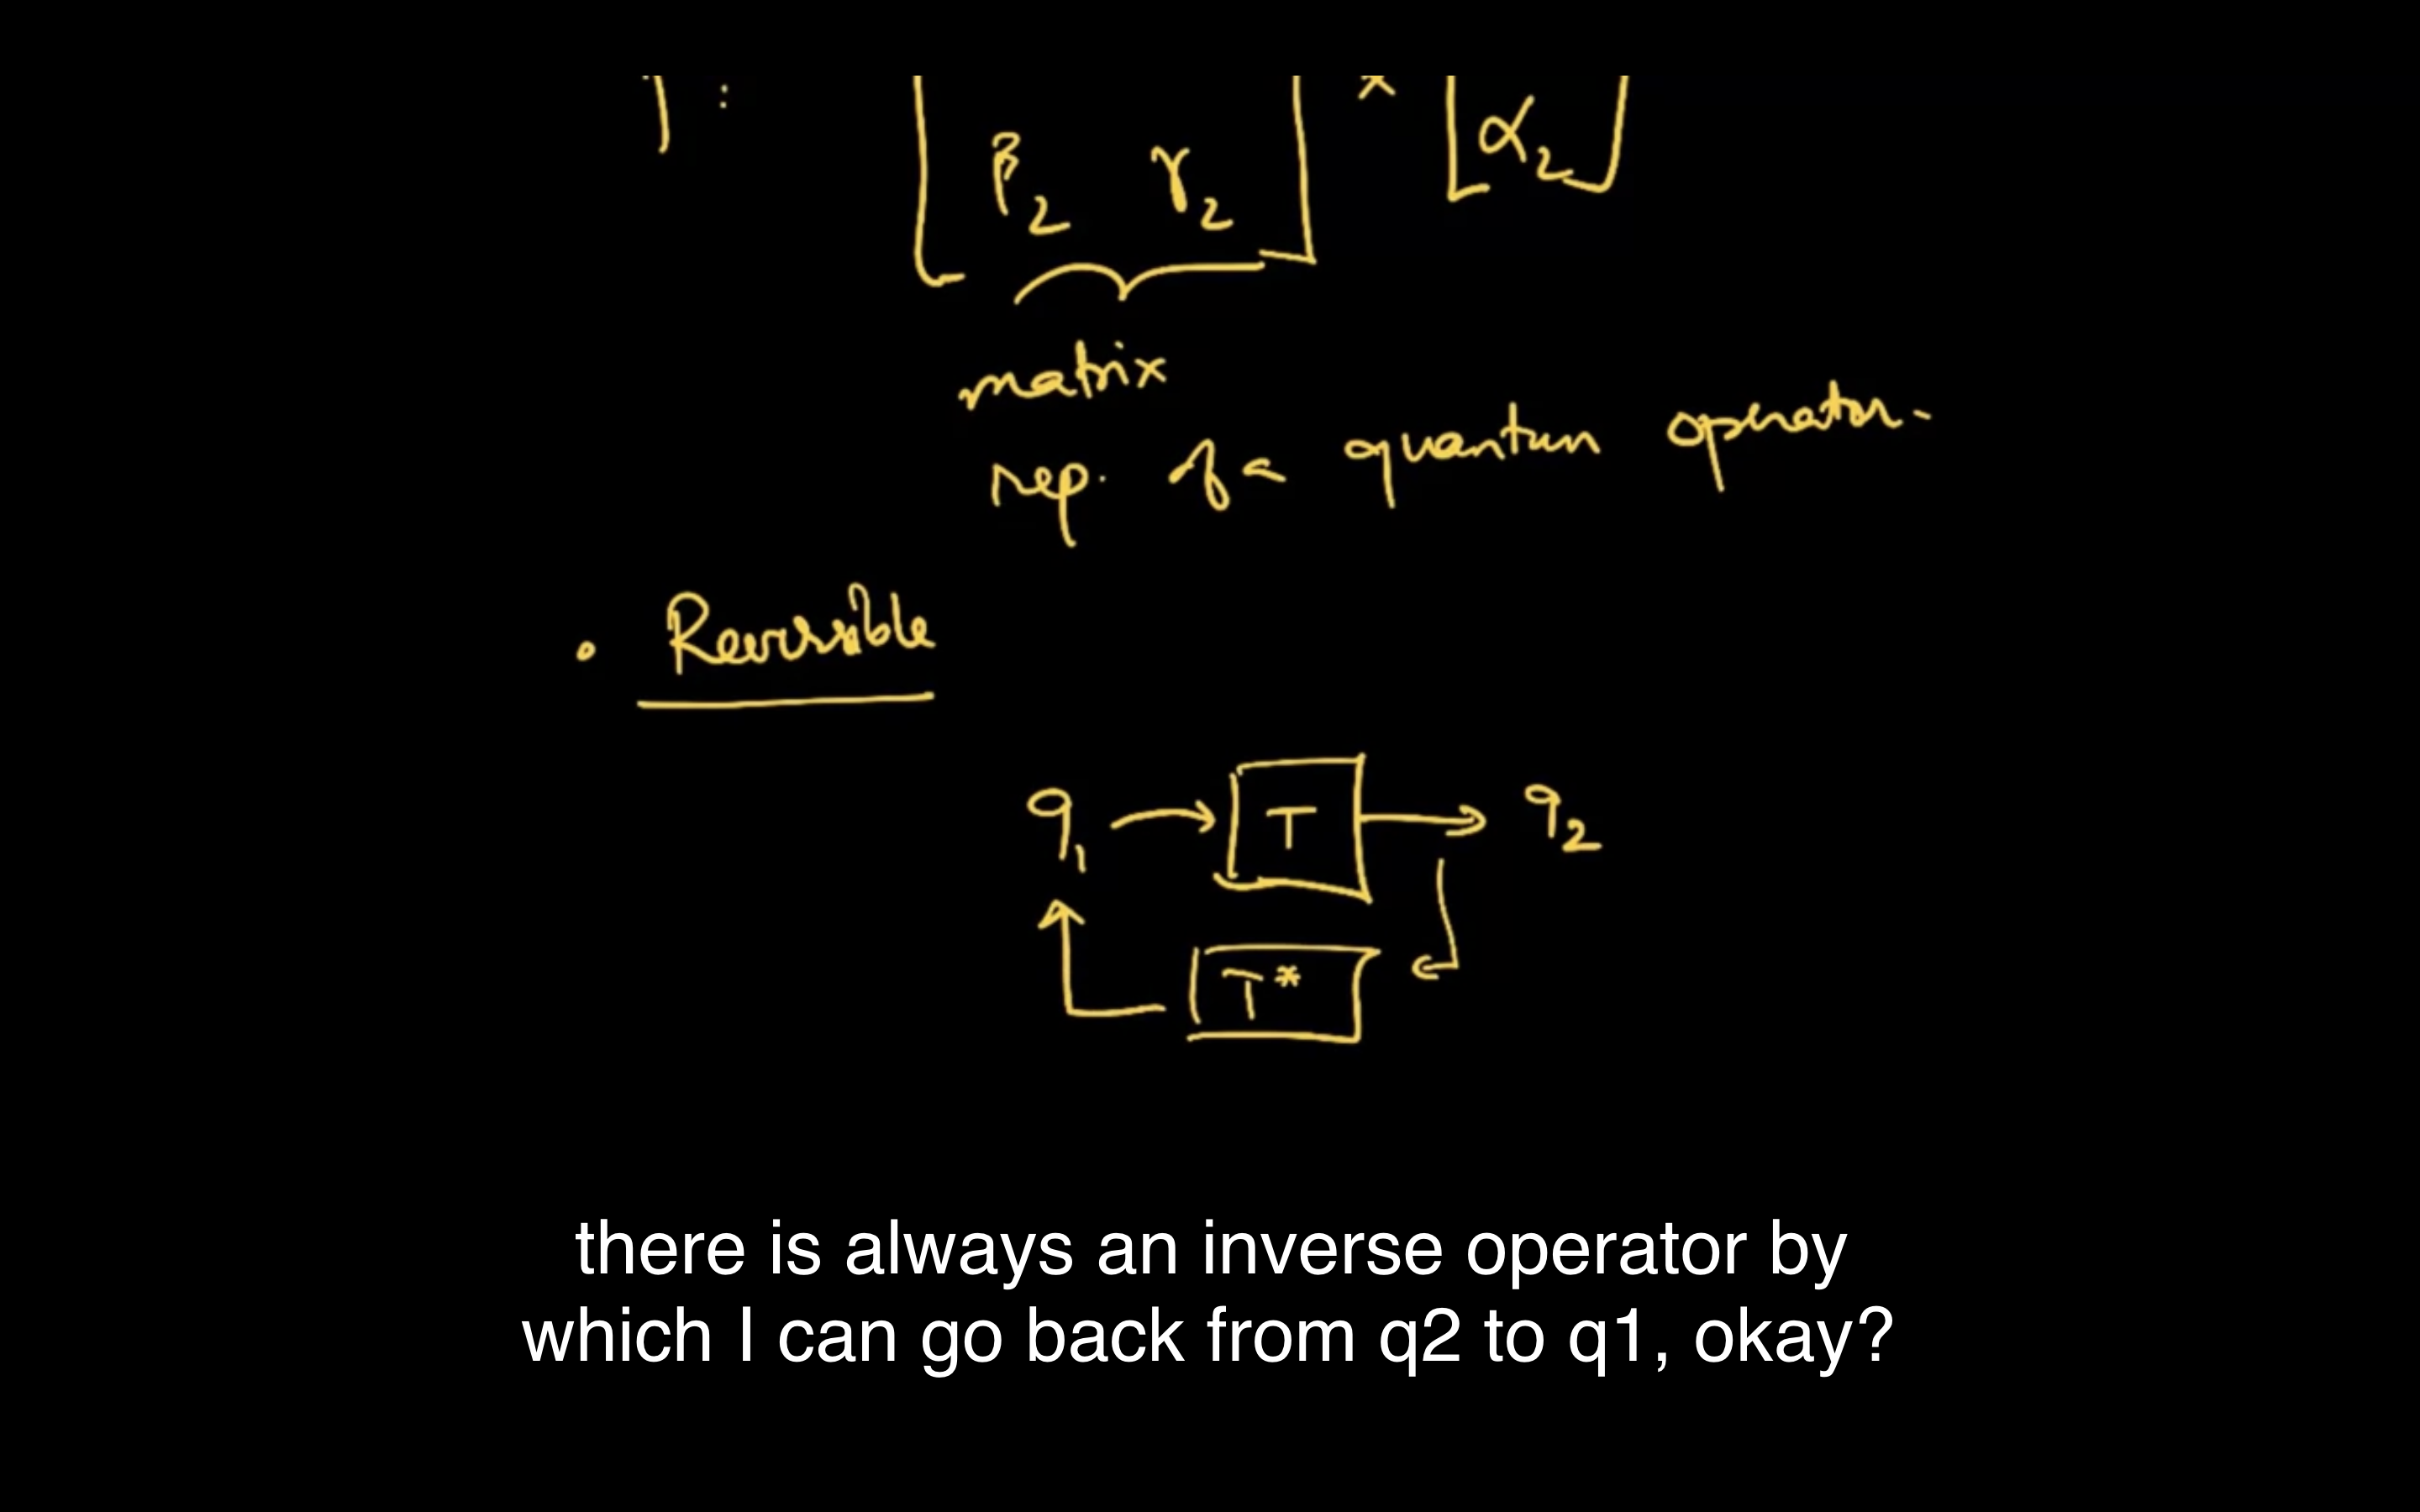 :
β2 γ2 * [α2]
matrix
rep. of a quantum operator.
• Reversible
q1 → T → q2
T*
there is always an inverse operator by
which I can go back from q2 to q1, okay?